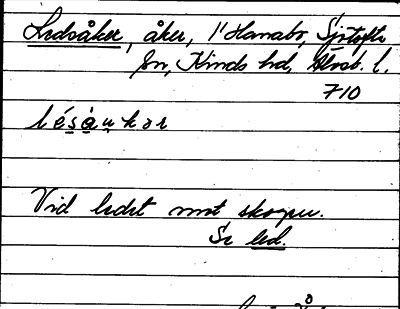 Ledsåker, åker, 1' Hanabo, Sjötofta
sn, Kinds hd, Älvsb. l.
710
lésåukər
Vid ledet mot skogen.
Se led.